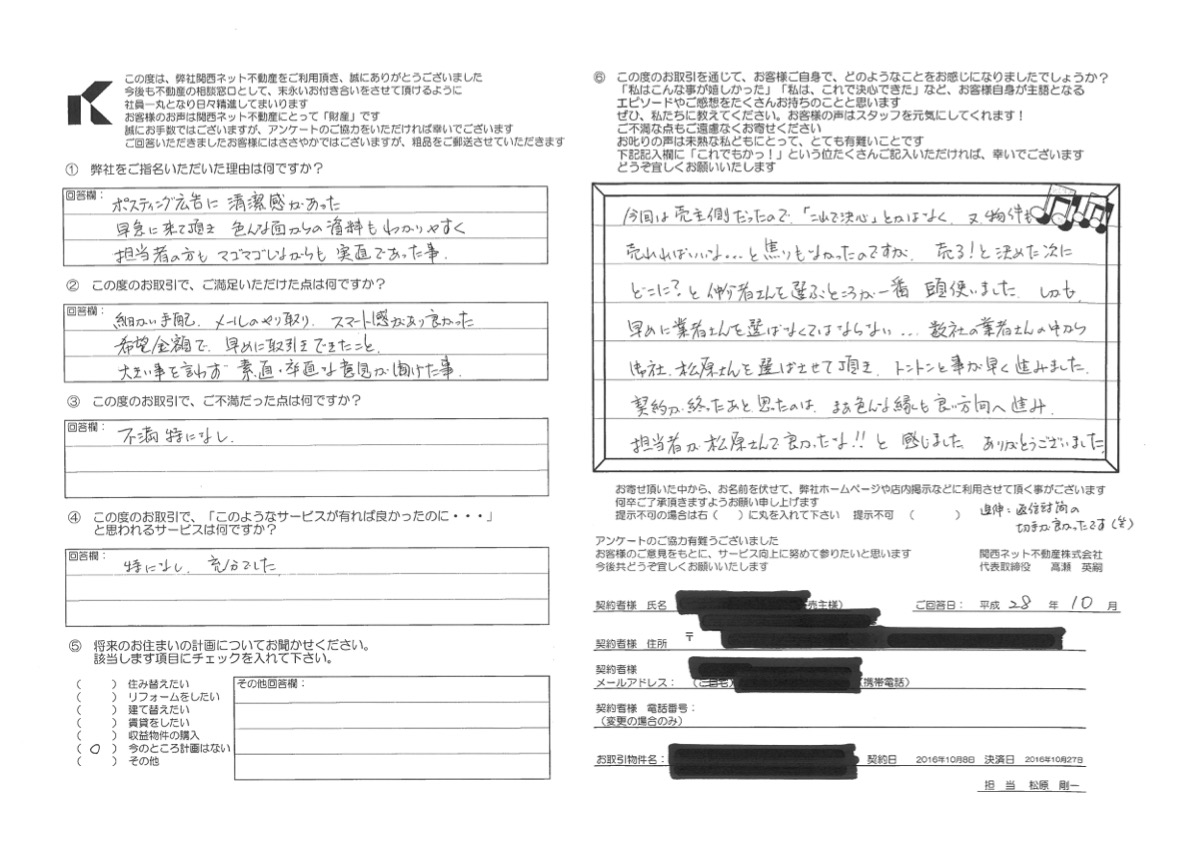 この度は、弊社関西ネット不動産をご利用頂き、誠にありがとうございました
今後も不動産の相談窓口として、末永いお付き合いをさせて頂けるように
社員一丸となり日々精進してまいります
お客様のお声は関西ネット不動産にとって「財産」です
誠にお手数ではございますが、アンケートのご協力をいただければ幸いでございます
ご回答いただきましたお客様にはささやかではございますが、粗品をご郵送させていただきます
① 弊社をご指名いただいた理由は何ですか?
回答欄:
ポスティング広告に 清潔感があった
早急に来て頂き 色んな面からの資料もわかりやすく
担当者の方も マゴマゴしながらも 実直であった事.
② この度のお取引で、ご満足いただけた点は何ですか?
回答欄:
細かい手配. メールのやり取り. スマート感があり良かった
希望金額で. 早めに取引きできたこと.
大きい事を言わず 素直・率直な意見が聞けた事.
③ この度のお取引で、ご不満だった点は何ですか?
回答欄:
不満 特になし.
④ この度のお取引で、「このようなサービスが有れば良かったのに・・・」
と思われるサービスは何ですか?
回答欄:
特になし. 充分でした
⑤ 将来のお住まいの計画についてお聞かせください。
該当します項目にチェックを入れて下さい。
( ) 住み替えたい
( ) リフォームをしたい
( ) 建て替えたい
( ) 賃貸をしたい
( ) 収益物件の購入
( ○ ) 今のところ計画はない
( ) その他
その他回答欄:
⑥ この度のお取引を通じて、お客様ご自身で、どのようなことをお感じになりましたでしょうか?
「私はこんな事が嬉しかった」「私は、これで決心できた」など、お客様自身が主語となる
エピソードやご感想をたくさんお持ちのことと思います
ぜひ、私たちに教えてください。お客様の声はスタッフを元気にしてくれます!
ご不満な点もご遠慮なくお寄せください
お叱りの声は未熟な私どもにとって、とても有難いことです
下記記入欄に「これでもかっ!」という位たくさんご記入いただければ、幸いでございます
どうぞ宜しくお願いいたします
今回は売主側だったので.「これで決心」とかはなく. 又 物件も
売れればいいな...と焦りもなかったのですが. 売る!と決めた次に
どこに?と仲介者さんを選ぶところが一番 頭使いました. しかも.
早めに業者さんを選ばなくてはならない... 数社の業者さんの中から
御社. 松原さんを選ばさせて頂き. トントンと事が早く進みました.
契約が終ったあと思ったのは. まあ色んな縁も良い方向へ進み.
担当者が松原さんで良かったな!!と 感じました ありがとうございました
お寄せ頂いた中から、お名前を伏せて、弊社ホームページや店内掲示などに利用させて頂く事がございます
何卒ご了承頂きますようお願い申し上げます
提示不可の場合は右( )に丸を入れて下さい 提示不可 ( )
追伸:返信封筒の
切手が良かったです(笑)
アンケートのご協力有難うございました
お客様のご意見をもとに、サービス向上に努めて参りたいと思います
今後共どうぞ宜しくお願いいたします
関西ネット不動産株式会社
代表取締役 高瀬 英嗣
契約者様 氏名 売主様) ご回答日: 平成 28 年 10 月
契約者様 住所 〒
契約者様
メールアドレス: (ご自宅) (携帯電話)
契約者様 電話番号:
(変更の場合のみ)
お取引物件名: 契約日 2016年10月8日 決済日 2016年10月27日
担 当 松原 剛一